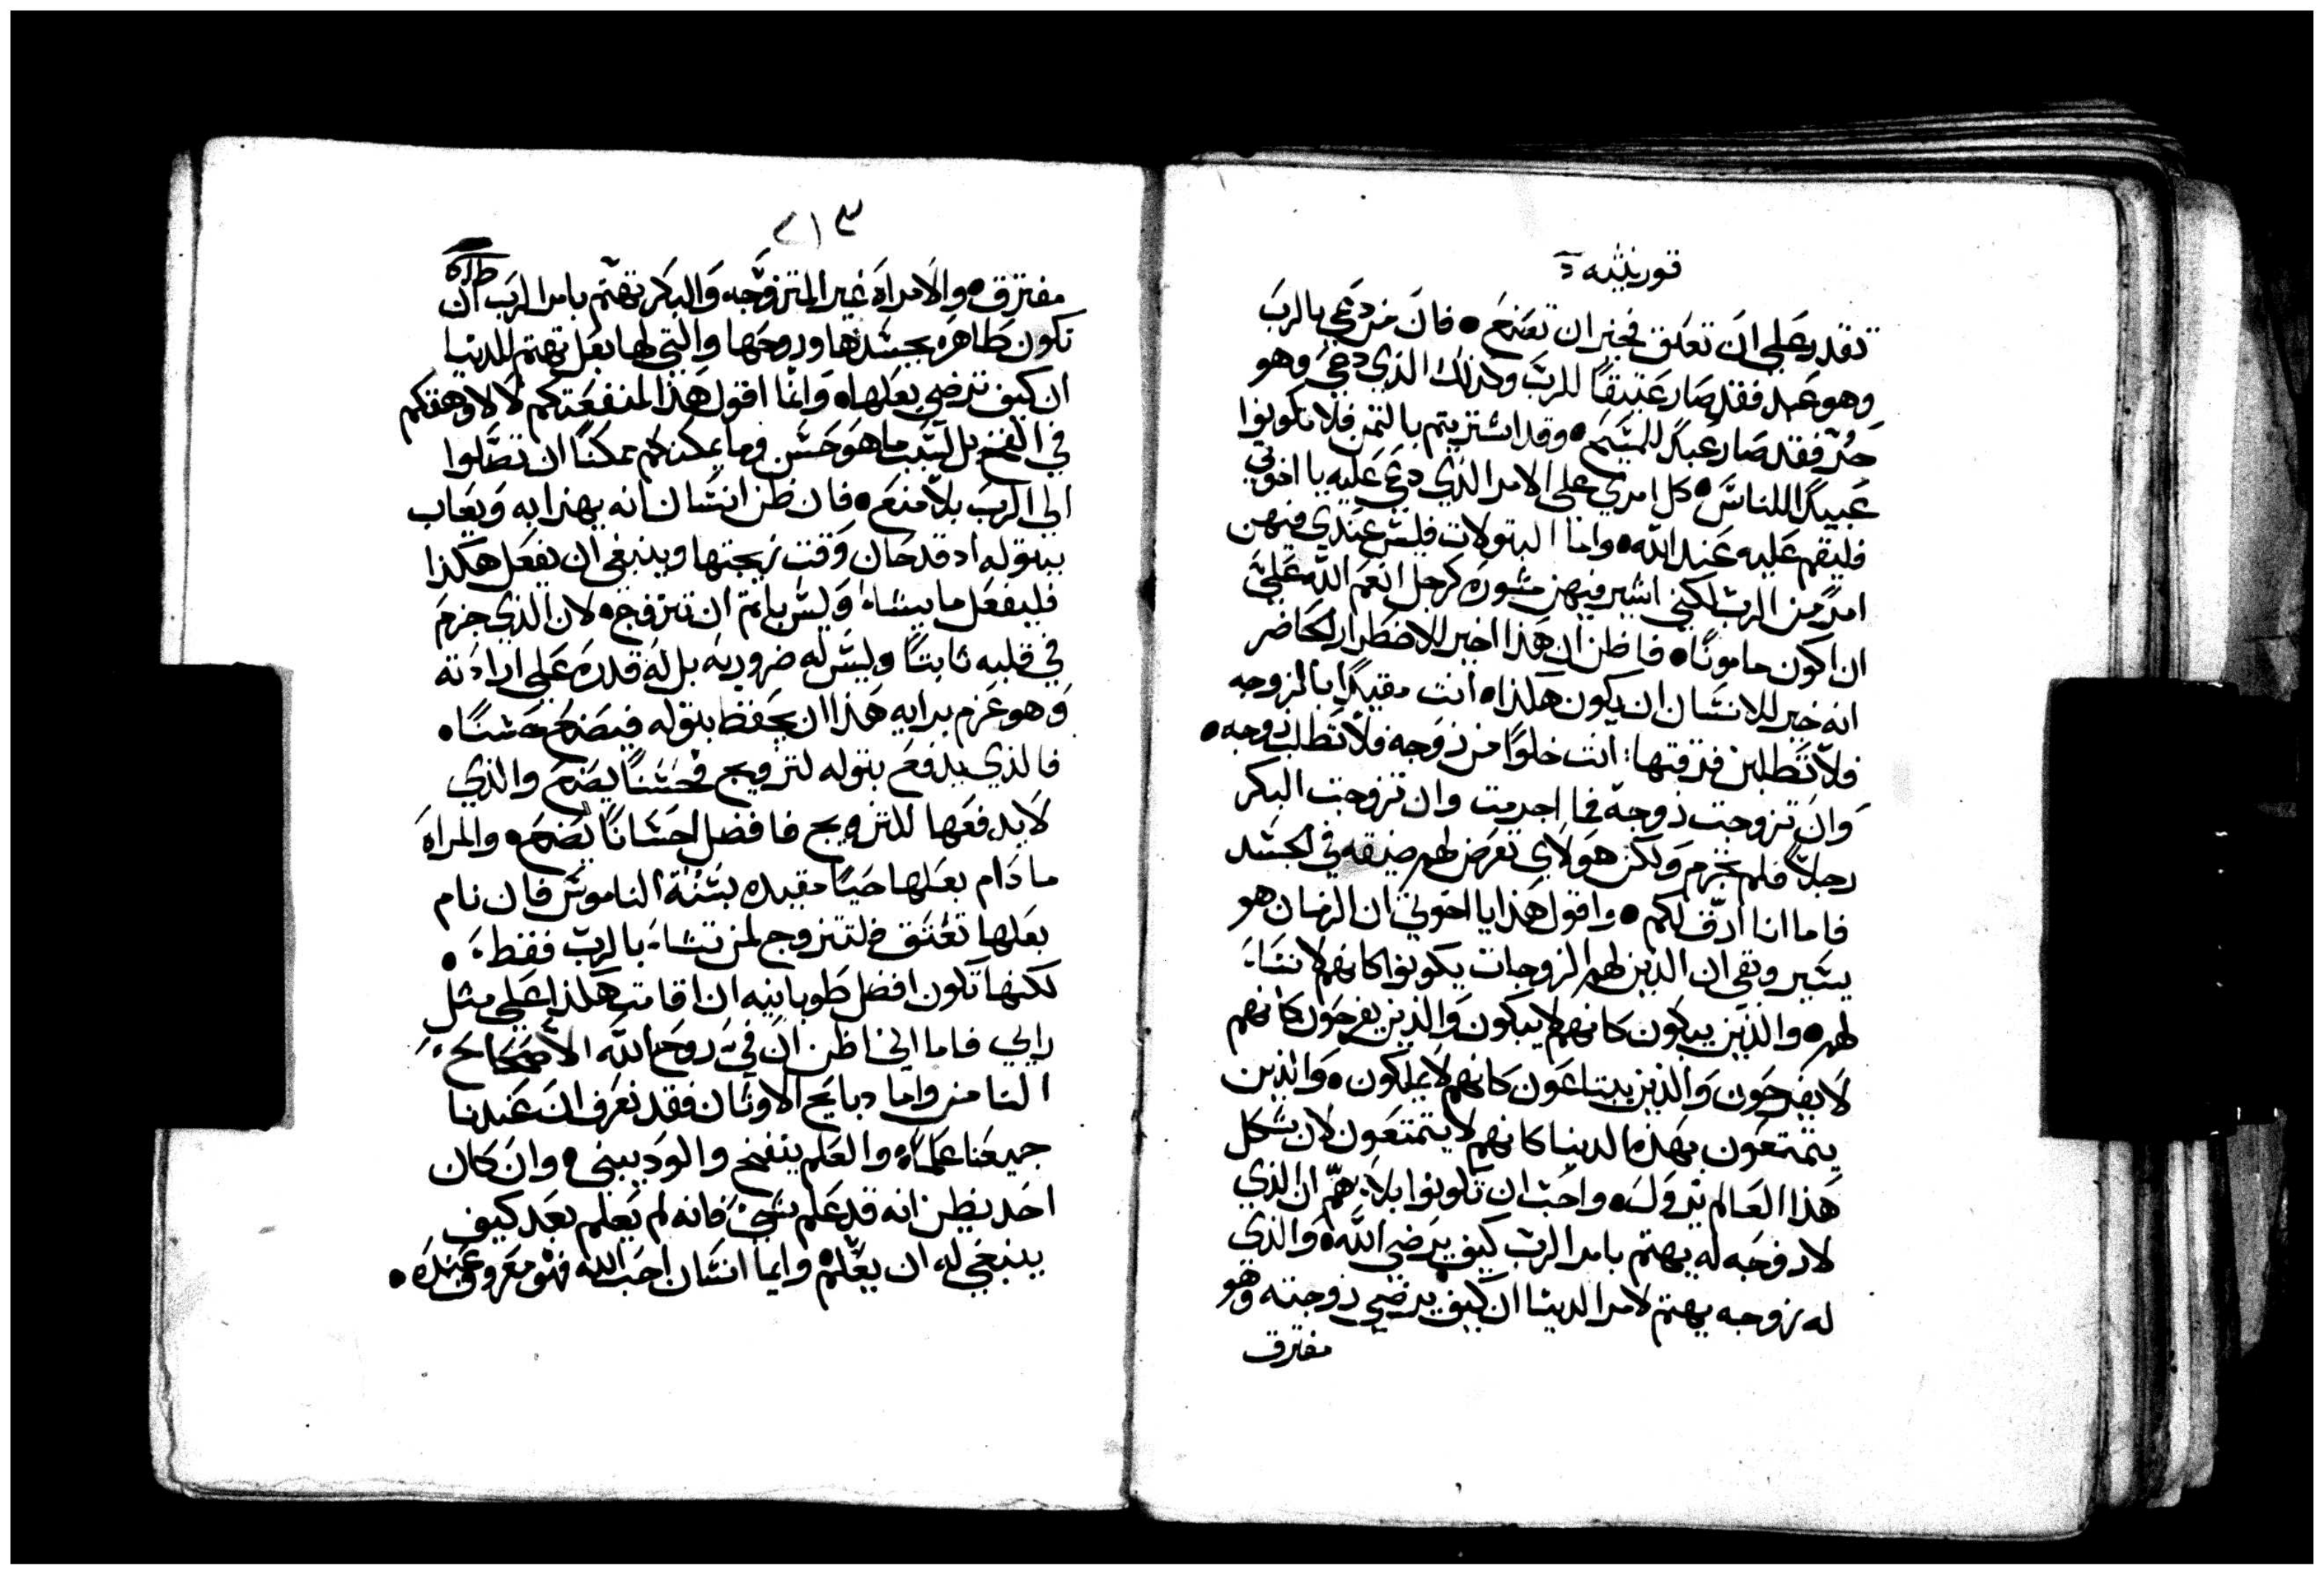 قورنثيه
تقدر على ان تعتق فخير ان تصنع ٠ فان من دعي بالرب
وهو عبد فقد صار عتيقًا للرب وكذلك الذي دعي وهو
حُرّ فقد صار عبدًا للمسيح ٠ وقد اشتريتم بالثمن فلا تكونوا
عبيدًا للناس ٠ كل امري على الامر الذي دعي عليه يا اخوتي
فليقم عليه عند الله ٠ واما البتولات فليس عندي فيهن
امرٌ من الرب لكني اشير فيهن مشوره كرجل انعم الله عليّ
ان اكون مامونًا ٠ فاظن ان هذا اخير للاضطرار الحاضر
انه خير للانسان ان يكون هكذا ٠ انت مقيدًا بالزوجه
فلا تطلبن فرقتها : انت خلوًا من زوجة فلا تطلب زوجه ٠
وان تزوجت زوجة فما اجرمت وان تزوجت البكر
رجلاً فلم تجرم ولكن هولاي تعرض لهم ضيقه في الجسد
فاما انا ارّق لكم ٠ واقول هذا يا اخوتي ان الزمان هو
يسير وبقى ان الذين لهم الزوجات يكونوا كانهم لا نساء
لهم ٠ والذين يبكون كانهم لا يبكون والذين يفرحون كانهم
لا يفرحون والذين يبتاعون كانهم لا يملكون ٠ والذين
يتمتعون بهذه الدنيا كانهم لا يتمتعون لان شكل
هذا العالم يزول ٠ واحب ان تكونوا بلا همّ ان الذي
لا زوجه له يهتم بامر الرب كيف يرضي الله ٠ والذى
له زوجه يهتم لامر الدنيا ان كيف يرضي زوجته وهو
مفترق
٢١٣
مفترق ٠ والامراه غير المتزوّجه والبكر تهتم بامر الرب ان
تكون طاهره بجسدها وروحها والتي لها بعل تهتم للدنيا
ان كيف ترضي بعلها ٠ وانما اقول هذا لمنفعتكم لا لاوهقكم
في الفخ بل لسبب ما هو حسن وما يمكنكم ممكنًا ان تصلوا
الى الرب بلا منع ٠ فان ظن انسان انه يهزا به ويعاب
ببتوله اذ قد حان وقت زيجتها وينبغي ان يفعل هكذا
فليفعل ما يشاء وليس ياثم ان تتزوج ٠ لان الذي جزم
في قلبه ثابتًا وليس له ضروريه بل له قدره على ارادته
وهو عزم برايه هذا ان يحفظ بتوله فيصنع حسنًا ٠
فالذي يدفع بتوله لتزويج فحسنًا يصنع والذي
لا يدفعها للتزويج فافضل احسانًا يصنع ٠ والمراه
ما دام بعلها حيًا مقيده بسنة الناموس فان نام
بعلها تعتق فلتتزوج لمن تشاء بالرب فقط ٠
لكنها تكون افضل طوبانيه ان اقامت هكذا على مثل
رايي فاما اني اظن ان فيّ روح الله الاصحاح
الثامن واما دبايح الاوثان فقد نعرف ان عندنا
جميعنا علمًا ٠ والعلم ينفخ والود يبنى ٠ وان كان
احد يظن انه قد علم شيء فانه لم يعلم بعد كيف
ينبغي له ان يعلم ٠ وايما انسان احب الله فهو معروف عنده ٠